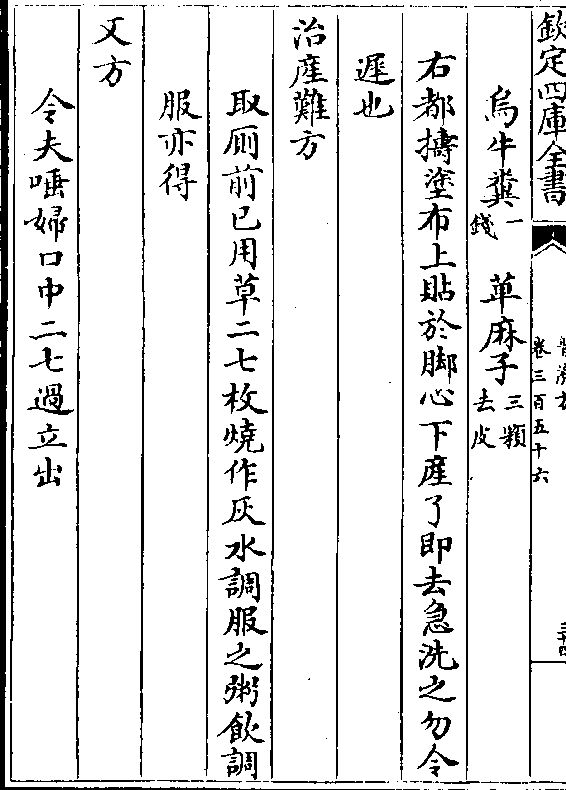 欽定四庫全書
卷三百五十六
烏牛糞一錢　萆麻子三顆去皮
右都擣塗布上貼於脚心下産了即去急洗之勿令
遲也
治産難方
取厠前已用草二七枚燒作灰水調服之粥飲調
服亦得
又方
令夫唾婦口中二七過立出